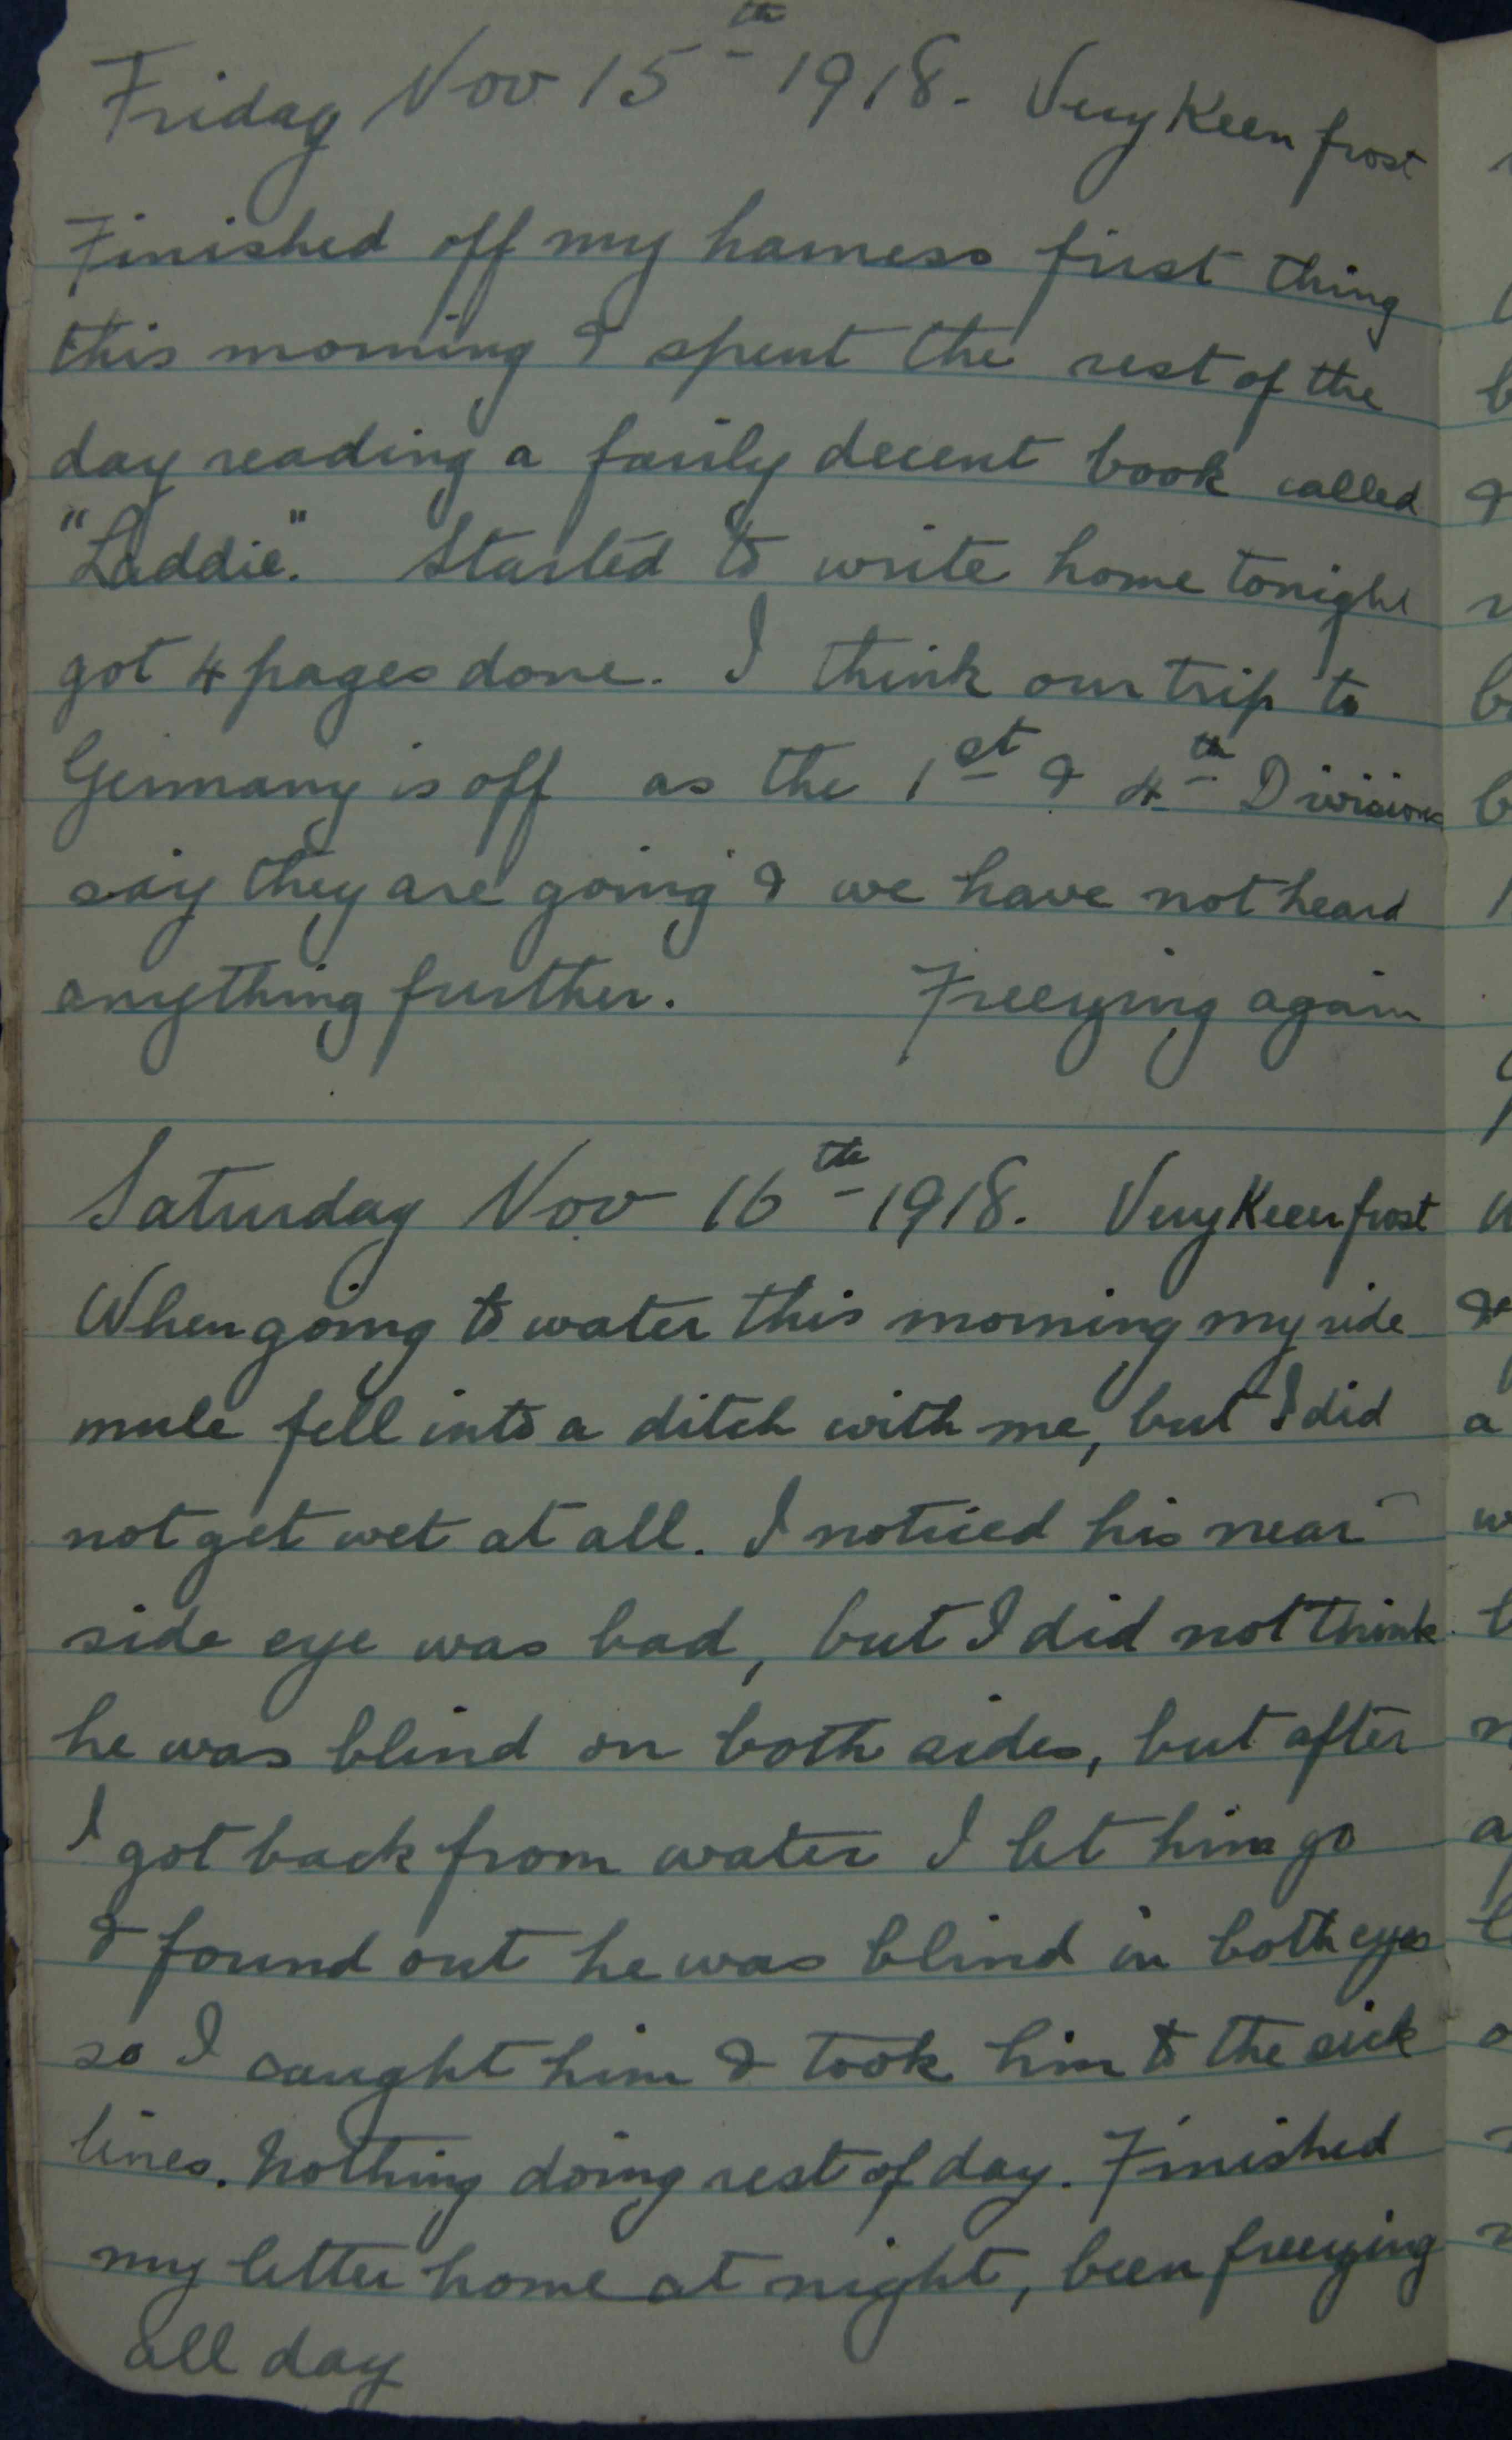 Friday Nov 15th 1918. Very Keen frost
Finished off my harness first thing
this morning & spent the rest of the
day reading a fairly decent book called
"Laddie". Started to write home tonight
got 4 pages done. I think our trip to
Germany is off as the 1st & 4th Divisions
say they are going & we have not heard
anything further. Freezing again
Saturday Nov 16th 1918. Very Keen frost
When going to water this morning my ride
mule fell into a ditch with me, but I did
not get wet at all. I noticed his near
side eye was bad, but I did not think
he was blind on both sides, but after
I got back from water I let him go
& found out he was blind in both eyes
so I caught him & took him to the sick
lines. Nothing doing rest of day. Finished
my letter home at night, been freezing
all day